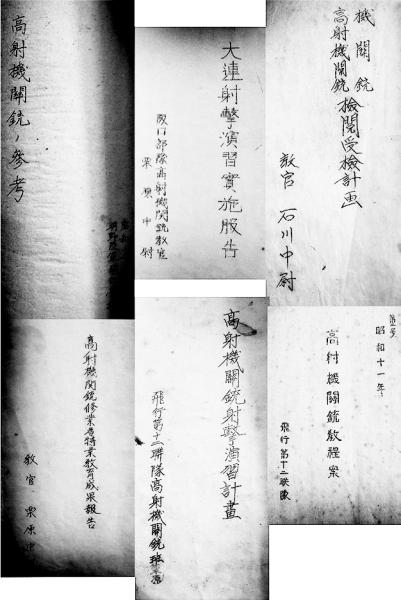 機関銃
高射機関銃
検閲受検計画
教官 石川中尉
大連射撃演習實施服告
廈门部隊高射機関銃教官
栗原中尉
高射機関銃ノ参考
第二号
昭和十一年
高射機関銃教程案
飛行第十二聯隊
高射機關銃射撃演習計畫
飛行第十二聯隊高射機關銃班
高射機関銃修業者特業教育成果報告
教官 栗原中